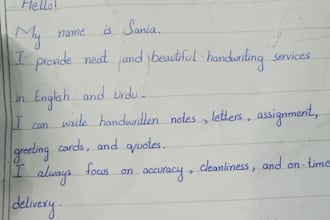 Hello!
My name is Sania.
I provide neat and beautiful handwriting services
in English and Urdu.
I can write handwritten notes, letters, assignment,
greeting cards, and quotes.
I always focus on accuracy, cleanliness, and on-time
delivery.